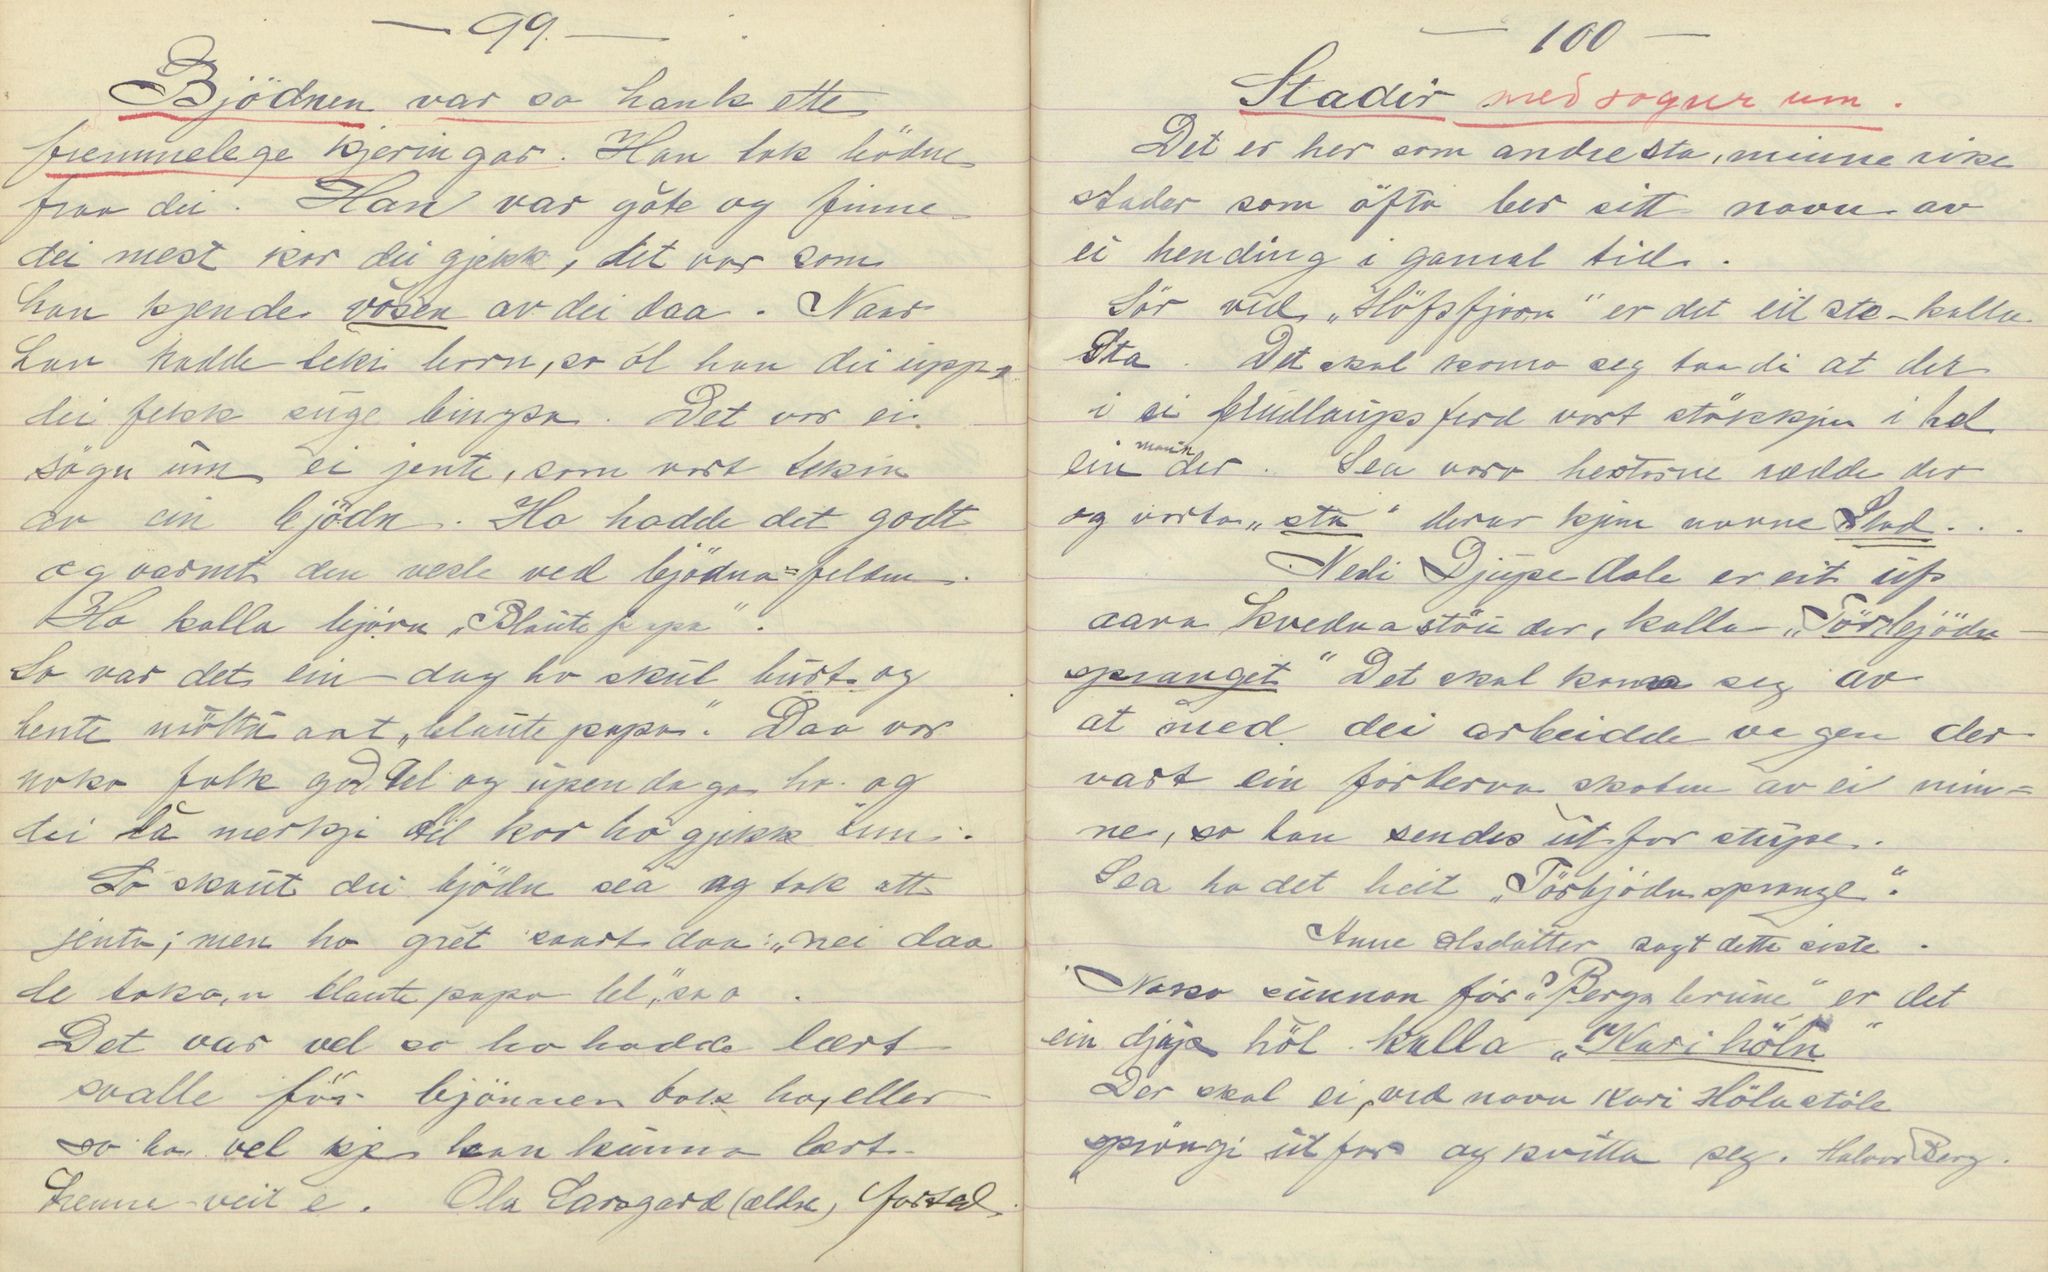 — 99. —
Bjödnen var so hank ette
fremmelege kjeringar. Han tok bödne
fraa dei. Han var göte og finne
dei mest kor dei gjekk, det var som
han kjende vösen av dei daa. Naar
han hadde tekje born, so ol han dei upp,
dei fekk suge bingsa. Det var ei
sögn um ei jente, som vart tekin
av ein bjödn. Ho hadde det godt
og varmt den vesle ved bjödna=felden.
Ho kalla bjørn „Blaute papa".
So var det ein dag ho skul burt og
hente mötta aat „blaute papa". Daa var
noko folk gad tel og upendaga ho og
dei la merkje til kor ho gjekk inn.
So skaut dei bjödn sea og tok att
jenta; men ho gret saart daa: „nei daa
de toka, n blaute papa te", sa o.
Det var vel so ho hadde lært
svalle för bjönnen tok ho, eller
so ho vel kje han kunna lært
henne – veit e. Ola Sarsgard (eldre) fortel.
— 100 —
Stadir med sogur um.
Det er her som andre sta, minnerike
stader som öfta ber sitt navn av
ei hending i gamal tid.
Sör ved „Höfsfjorn" er det eit ste – kalla
Sta. Det skal koma seg taa di at der
i ei brudlaupsferd vart stökkjen i hel
ein mann der. Sea vara hestarne rædde der
og varta „sta" derav kjem navne Stad...
Nedi Djupedale er eit uf
aara Kvednastöu der, kalla „Törbjödn-
spranget" Det skal koma seg av
at med dei arbeidde vegen der
vart ein förterva skoten av ei min=
ne, so han sendes utfor stupe.
Sea ha det heit „Törbjödnsprange".
Anne Olsdatter sagt dette siste.
Noko sunnan för „Bergabrune" er det
ein djup höl kalla „Kari höln"
Der skal ei, ved navn Kari Hölnstöle
sprongi utfor og kvitta seg. Halvor Berg.